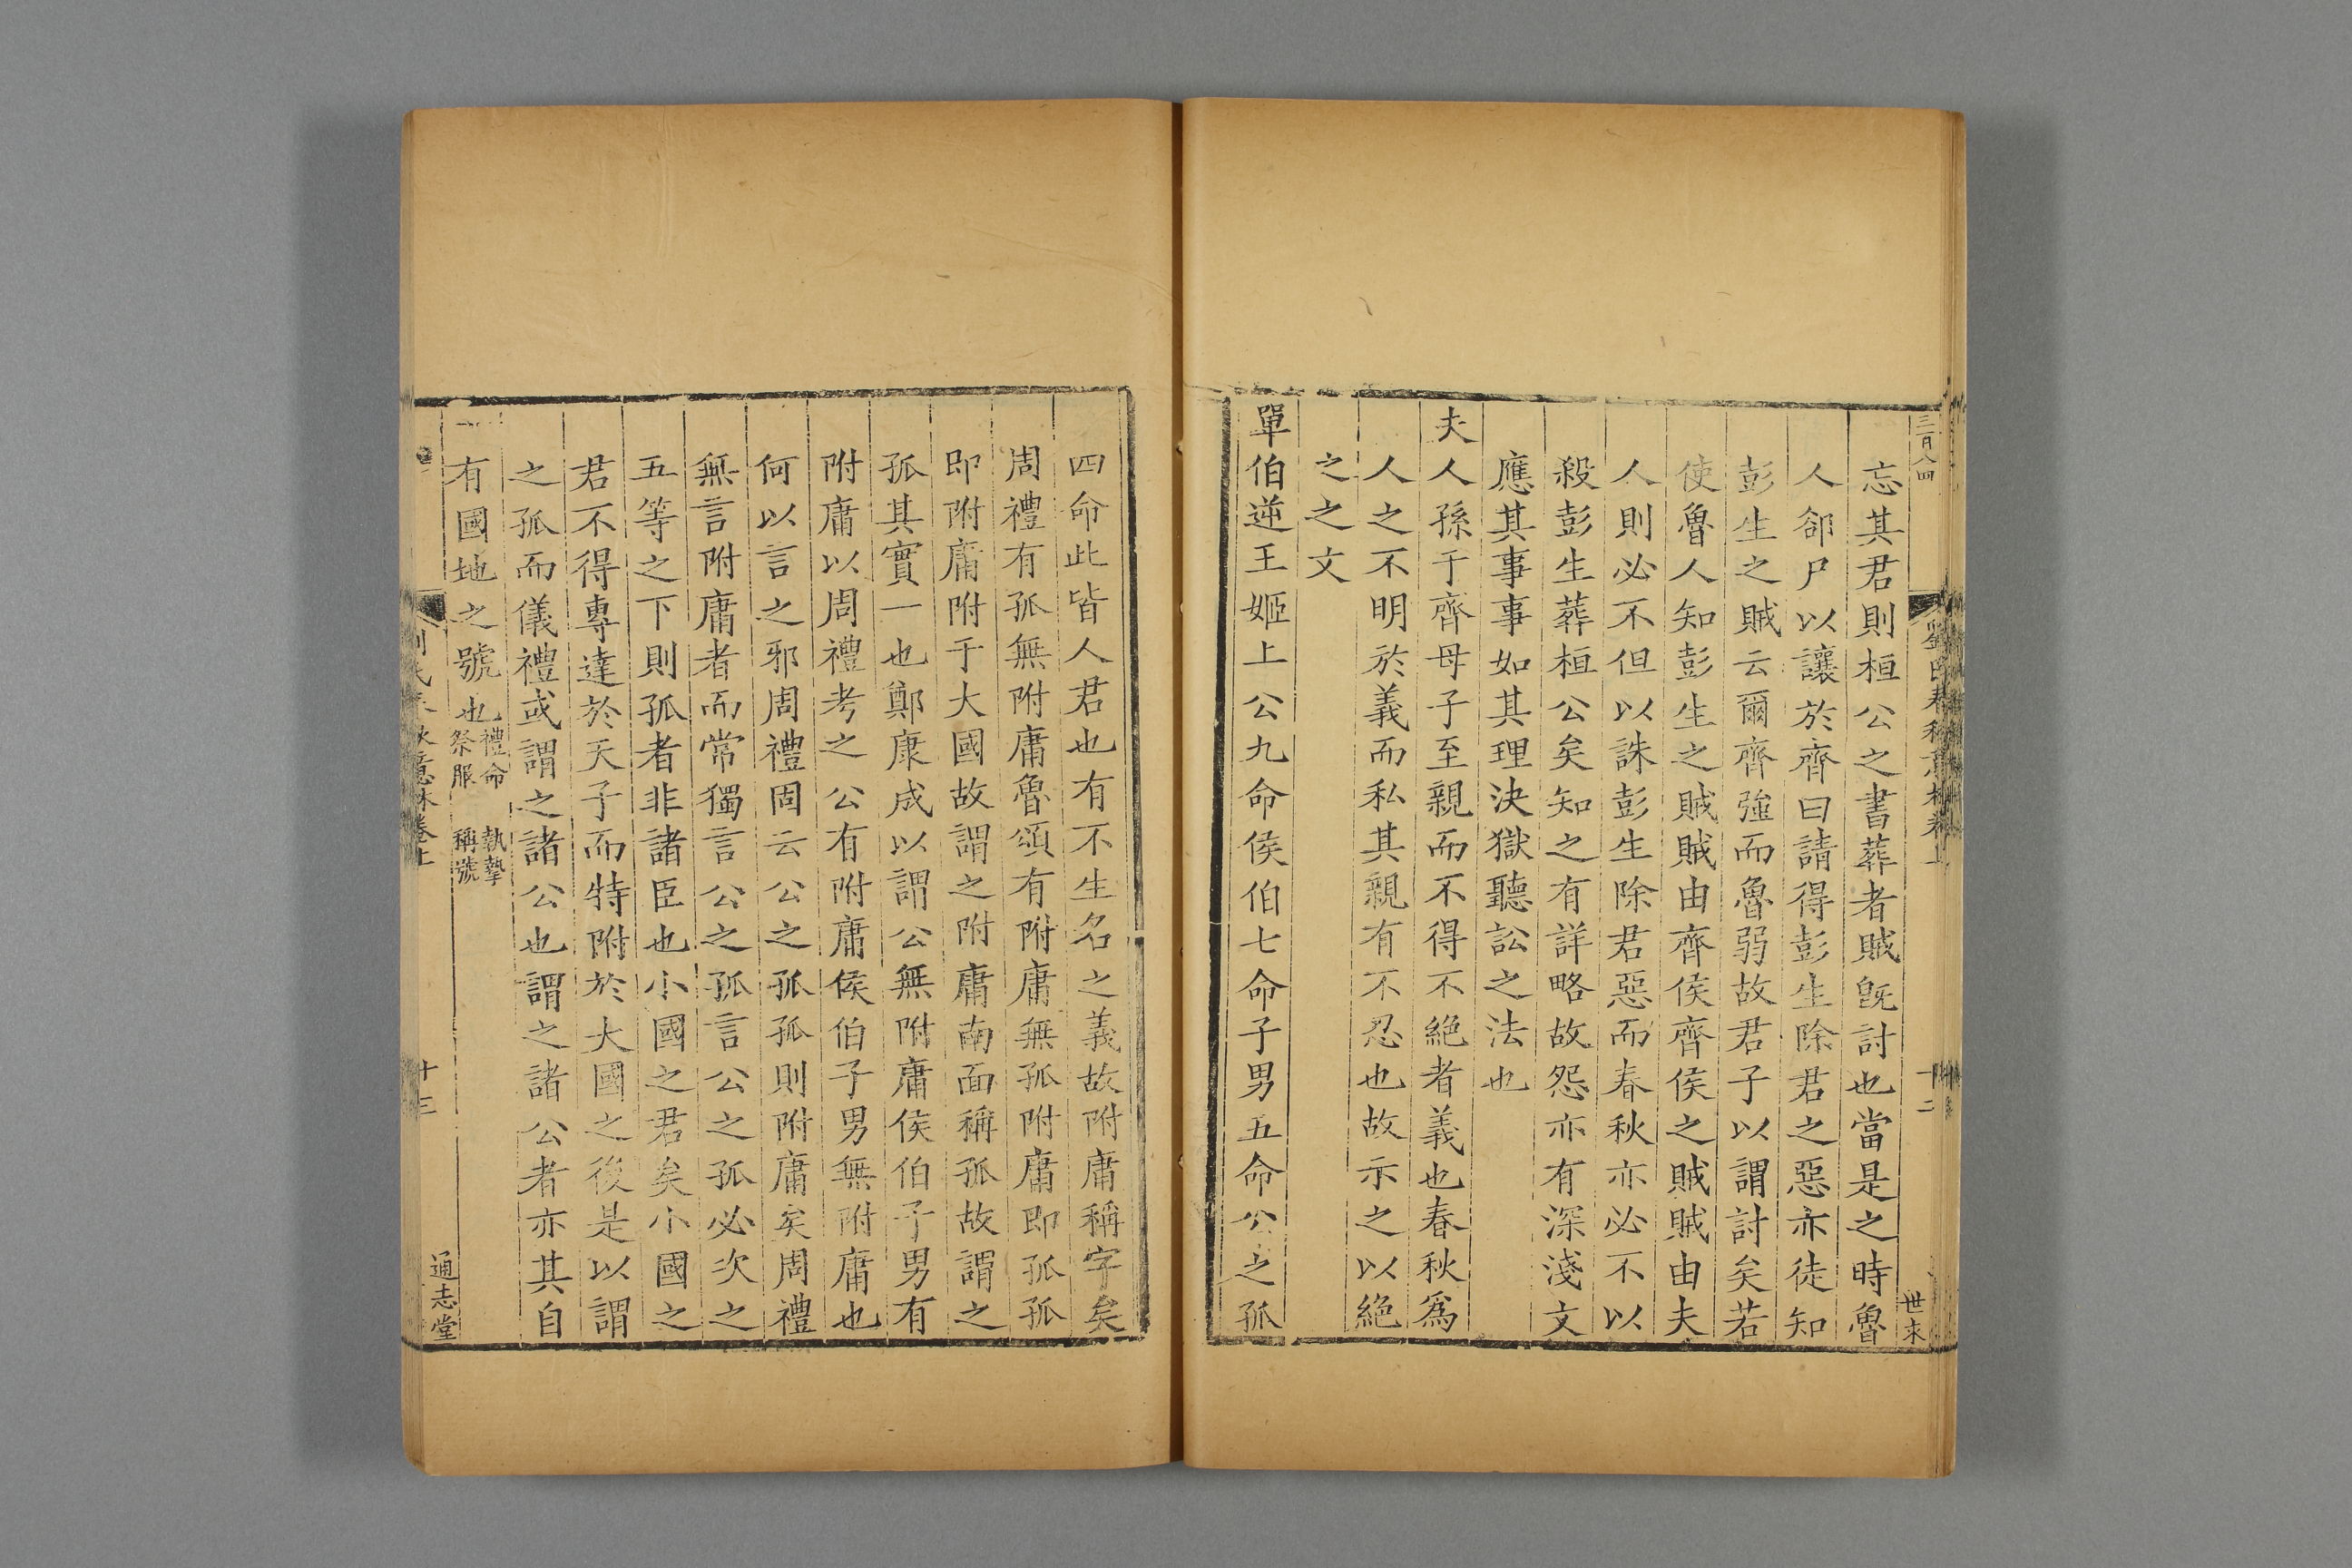 三百八四
忘其君則桓公之書葬者賊旣討也當是之時魯
人郤尸以讓於齊曰請得彭生除君之惡亦徒知
彭生之賊云爾齊強而魯弱故君子以謂討矣若
使魯人知彭生之賊賊由齊侯齊侯之賊賊由夫
人則必不但以誅彭生除君惡而春秋亦必不以
殺彭生葬桓公矣知之有詳略故怨亦有深淺文
應其事事如其理決獄聽訟之法也
夫人孫于齊母子至親而不得不絕者義也春秋爲
人之不明於義而私其親有不忍也故示之以絕
之之文
單伯逆王姬上公九命侯伯七命子男五命公之孤
十二
世来
四命此皆人君也有不生名之義故附庸稱字矣
周禮有孤無附庸魯頌有附庸無孤附庸即孤孤
即附庸附于大國故謂之附庸南面稱孤故謂之
孤其實一也鄭康成以謂公無附庸侯伯子男有
附庸以周禮考之公有附庸侯伯子男無附庸也
何以言之邪周禮固云公之孤孤則附庸矣周禮
無言附庸者而常獨言公之孤言公之孤必次之
五等之下則孤者非諸臣也小國之君矣小國之
君不得專達於天子而特附於大國之後是以謂
之孤而儀禮或謂之諸公也謂之諸公者亦其自
有國地之號也禮命祭服 執摯稱號
劉氏春秋意林卷上
十三
通志堂